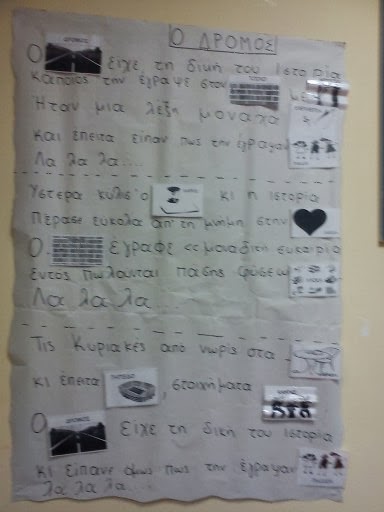 Ο ΔΡΟΜΟΣ
Ο ΔΡΟΜΟΣ είχε τη δική του Ιστορία
κάποιος την έγραψε στον ΤΟΙΧΟ με
Ήταν μια λέξη μοναχα
και έπειτα είπαν πως την έγραψαν
Λα λα λα....
Ύστερα κύλισ'ο κι η ιστορία
Πέρασε εύκολα απ'τη μνήμη στην
Ο έγραφε <<μοναδική ευκαιρία
εντός πωλούνται πάσης φύσεως
Λα λα λα....
Τις Κυριακές από νωρίς στα
κι έπειτα ΓΗΠΕΔΟ, στοιχήματα
Ο ΔΡΟΜΟΣ Είχε τη δική του ιστορία
κι είπανε όμως πως την έγραψαν
λα λα λα....